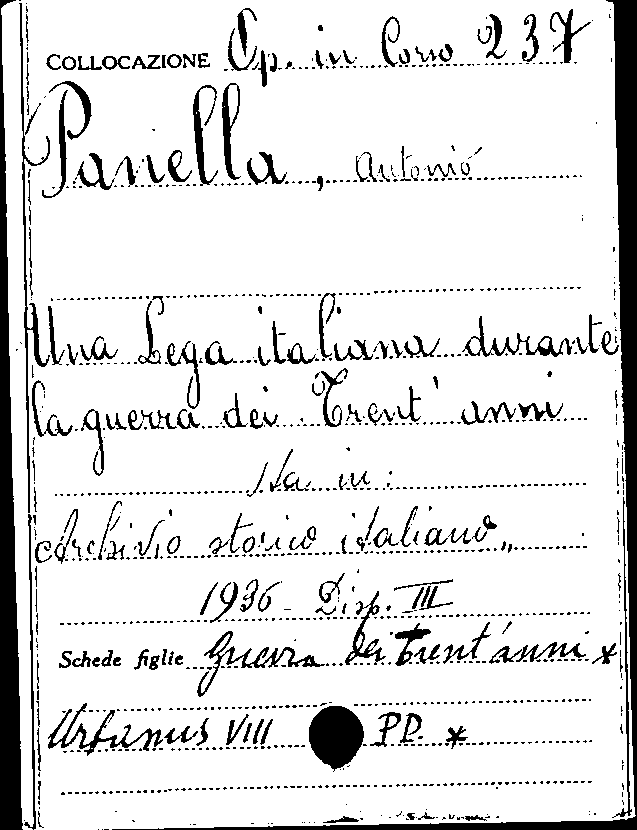 COLLOCAZIONE Op. in Corso 237
Panella, Antonio
Una Lega italiana durante
la guerra dei Trent' anni
Sta in:
Archivio storico italiano,,
1936 - Disp. III
Schede figlie Guerra dei Trent'anni *
Urbanus VIII PP. *